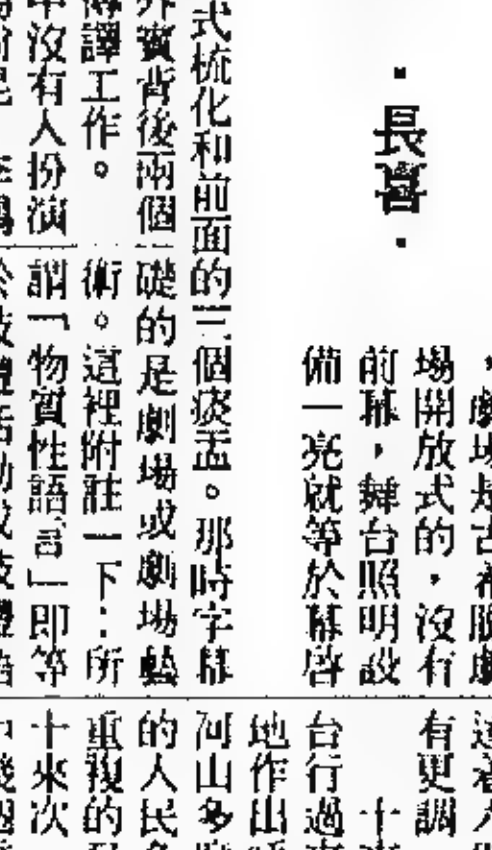 ．長喜．
，劇場是古希臘劇
場開放式的，沒有
前幕，舞台照明設
備一亮就等於幕啓
式梳化和前面的三個痰盂。那時字幕
外賓背後兩個
礎的是劇場或劇場藝
傳譯工作。
術。這裡附註一下：所
中沒有人扮演
謂「物質性語言」即等
於肢體活動或肢體語
有更調
十
台行過
地作出
河山多
的人民
重複的
十來次
中幾個